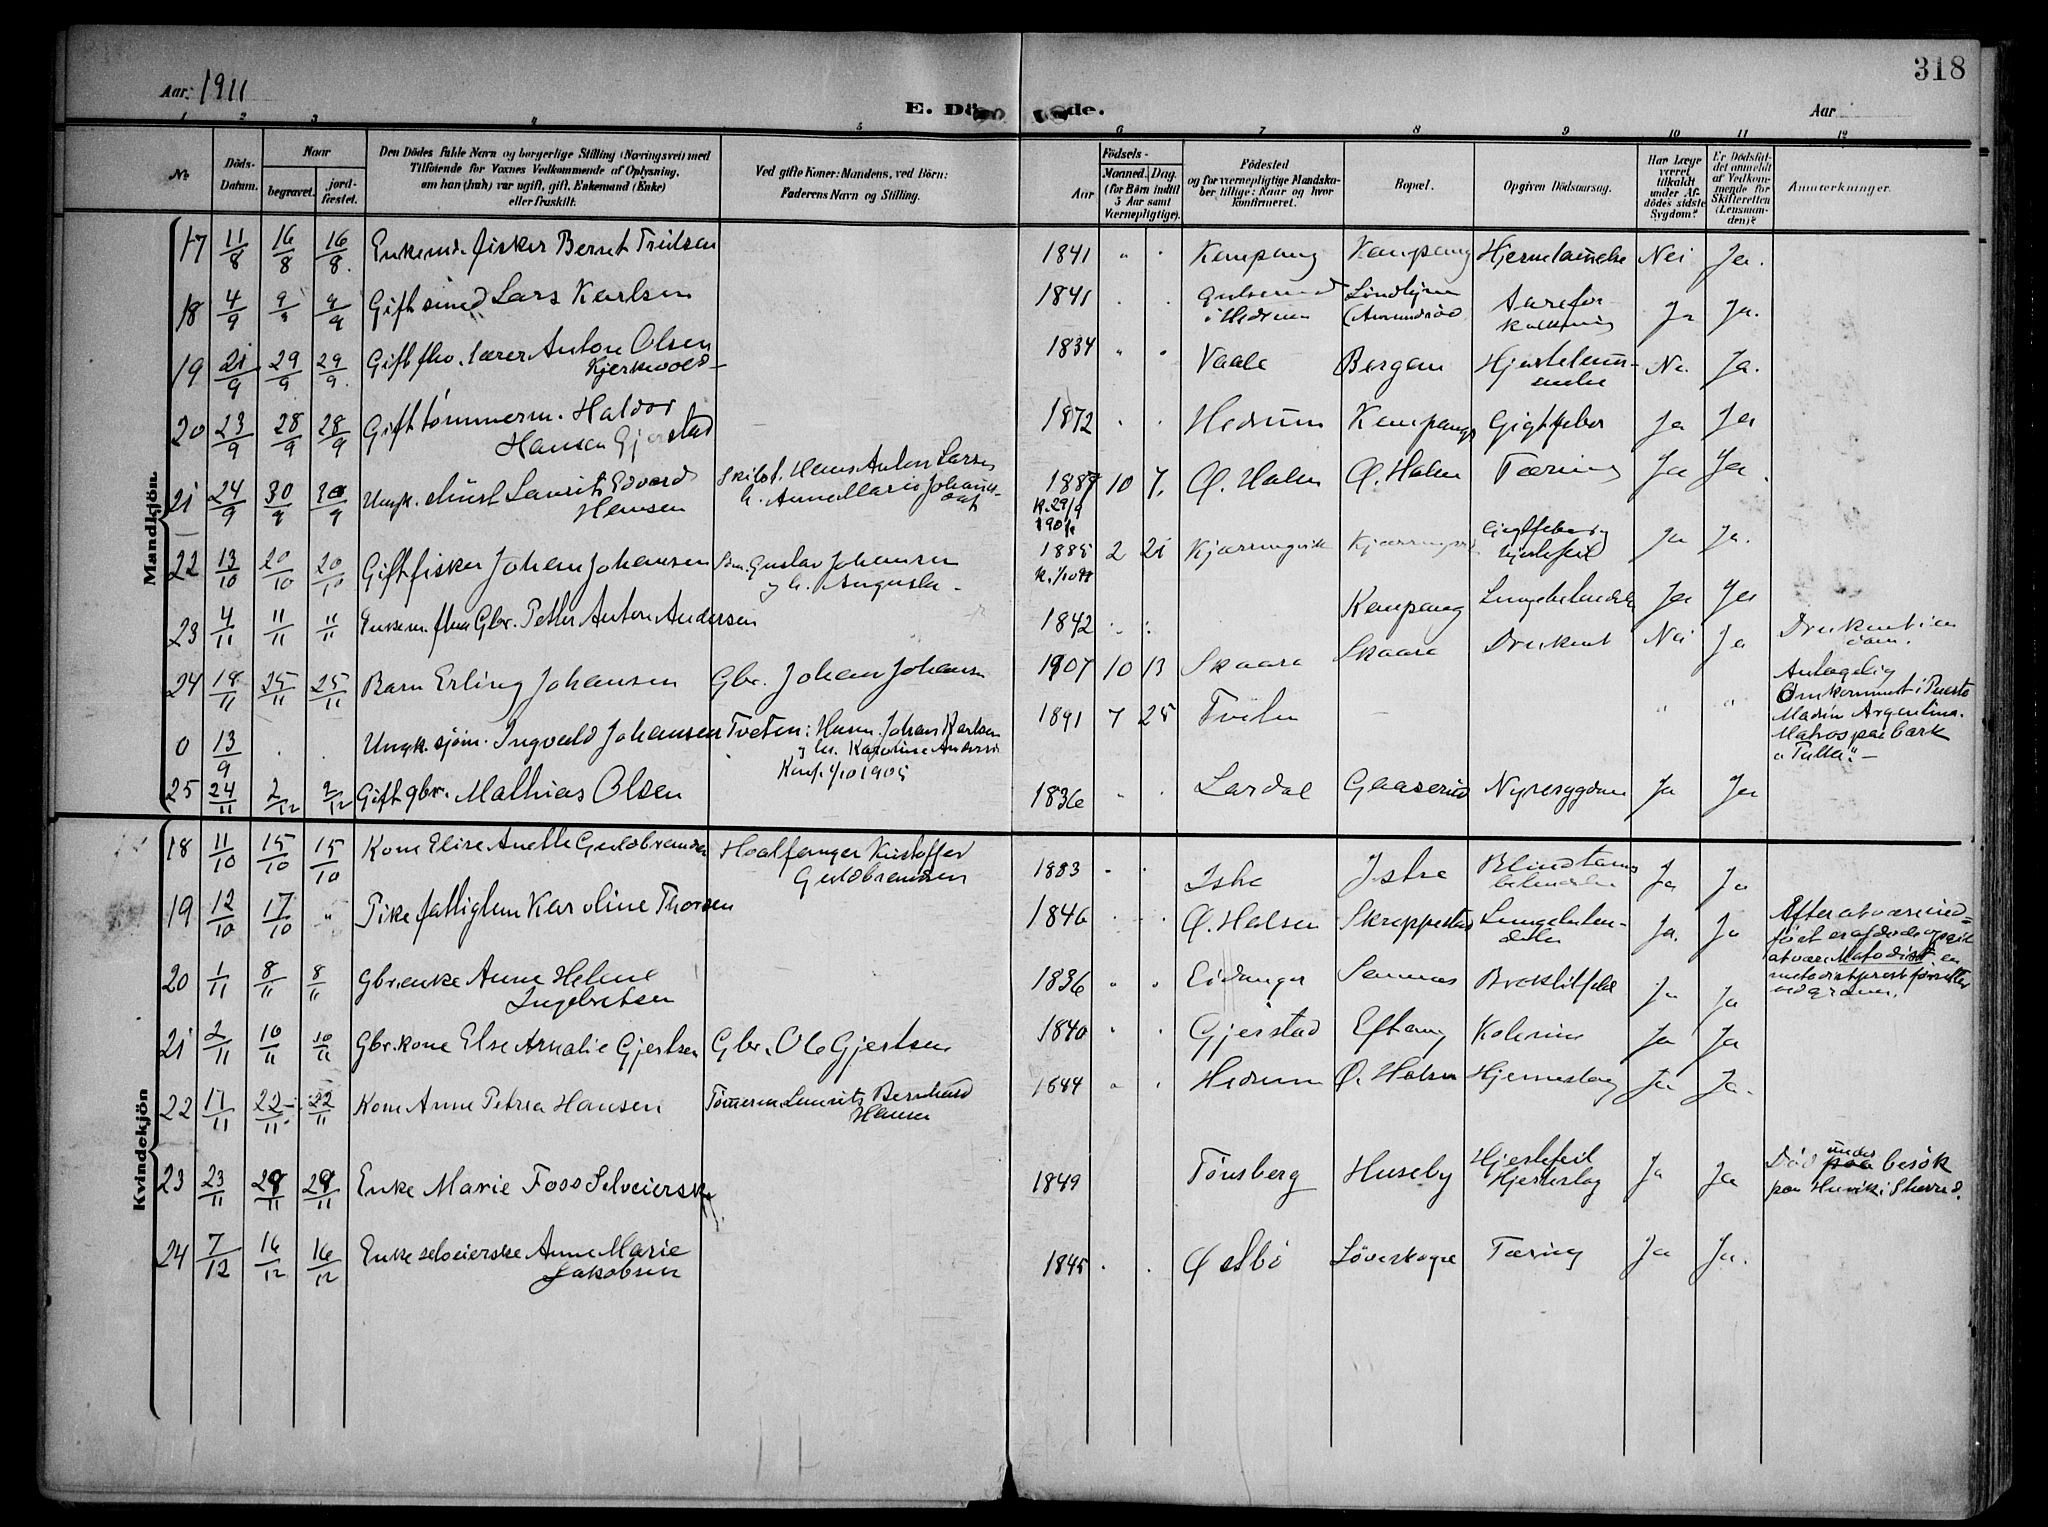 318
Aar: 1911
E. Dö de.
Aar
1 2 3 4 5 6 7 8 9 10 11 12
No
Döds-Datum.
Naar
begravet.
jord-fæstet.
Den Dödes fulde Navn og borgerlige Stilling (Næringsvei) med
Tilföiende for Voxnes Vedkommende af Oplysning,
om han (hun) var ugift, gift, Enkemand (Enke)
eller fraskilt.
Ved gifte Koner: Mandens, ved Börn:
Faderens Navn og Stilling.
Födsels-
Aar
Maaned. Dag.
(for Börn indtil
5 Aar samt
Værnepligtige).
Födested
og for værnepligtige Mandska-
ber tillige: Naar og hvor
konfirmeret.
Bopæl.
Opgiven Dödsaarsag.
Har Læge
været
tilkaldt
under Af-
dödes sidste
Sygdom?
Er Dödsfal-
det anmeldt
af Vedkom-
mende for
Skifteretten
(Lensman-
den)?
Anmærkninger.
Mandkjön.
17 11/8 16/8 16/8. Enkemd. fisker Bernt Trulsen 1841 " . Kampang Kampang Hjernelammelse Nei Ja.
18 4/9 9/9 9/9 Gift smed Lars Karlsen 1841 . . i Hedrum Aarefor-
kalkning Ja Ja.
19 21/9 29/9 29/9. Gift fhv. lærer Anton Olsen
Kjerkvold 1834 " " Vaale Bergan Ne. Ja.
20 23/9 28/9 28/9 Gift tömmerm. Haldor
Hansen Gjerstad 1872 . . Hedrum Gigtfeber Ja Ja
21 24/9 30/9 30/9 Ungk. Laurits Edvard
Hansen
Hans Anton Larsen
1887 10 7. Ø. Halsen Ø. Halsen Tæring Ja Ja.
22 13/10 20/10 20/10 Gift fisker Johan Johansen Gustav Johansen
og h. Augusta
1885 2 21 Kjærringvik Kjærringvik Gigtfeber og
hjertefeil Ja Ja.
23 4/11 11/11 11/11 Enkem. Gbr. Petter Anton Andersen 1842 . . Kampang Lungebetændelse Ja Ja
24 18/11 25/11 25/11 Barn Erling Johansen Gbr. Johan Johansen 1907 10 13 Skaara Skaara Druknet Nei Ja Druknet i en
dam.
0 13/9 . . Ungk. sjöm. Ingvald Johansen Tveten: Husm. Johan Karlsen
og h. Karoline Andersen
Konf. 1/10 1905
1891 7 25 — " " Antagelig
omkommet i Puerto
Madrin Argentina.
Matros paa bark
—
25 24/11 2/12 2/12 Gift gbr. Mathias Olsen 1836 " . Lardal Gaaserud Nyresygdom Ja Ja
Kvindekjön
18 11/10 15/10 15/10 Kone Elise Anette Guldbrandsen Hvalfanger Kristoffer
Guldbrandsen 1883 . . Istre Istre Blindtarms
betændelse Ja Ja
19 12/10 17/10 " Pike fattiglem Karoline Thorsen 1846 . . Ø. Halsen Lungebeten-
delse Ja. Ja
20 1/11 8/11 8/11 Gbr.enke Anne Helene
Ingebretsen 1836 " . Eidanger Ja Ja
21 2/11 10/11 10/11 Gbr.kone Else Amalie Gjertsen Gbr. Ole Gjertsen 1840 " . Gjerstad Eftang Kolerine Ja Ja
22 17/11 22/11 22/11 Kone Anne Petrea Hansen Laurits Bernhard
Hansen 1844 " . Hedrum Ø. Halsen Hjerneslag Ja Ja.
23 23/11 29/11 29/11 Enke Marie Foss Selveierske 1849 Tönsberg Huseby Hjertefeil
Hjerneslag Ja Ja Död under besök
24 7/12 16/12 16/12 Enke selveierske Anne Marie
Jakobsen 1845 . . Østbö Löveskogne Tæring Ja Ja.